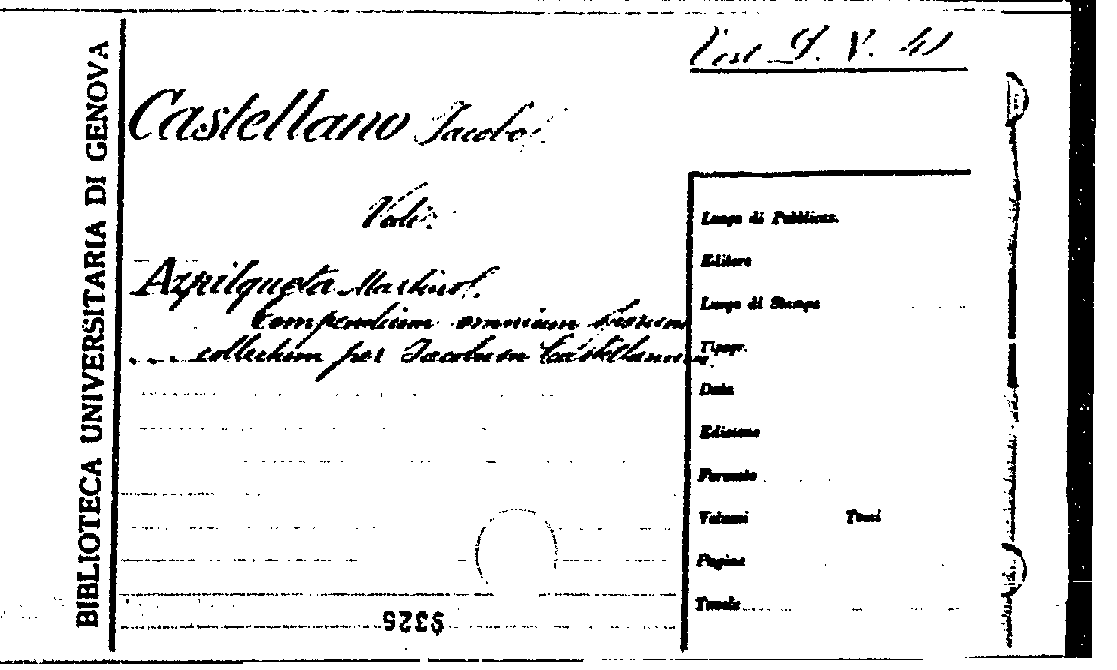 BIBLIOTECA UNIVERSITARIA DI GENOVA
Castellano Jacobo.
Vedi:
Azpilqueta Martino.
Compendium omnium
collectum per Jacobum Castellanum.
Luogo di Pubblicaz.
Editore
Luogo di Stampa
Tipogr.
Data
Edizione
Formato
Volumi Tomi
Pagine
Tavole